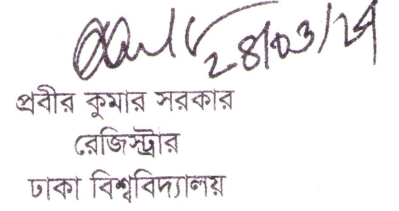 28/03/24
প্রবীর কুমার সরকার
রেজিস্ট্রার
ঢাকা বিশ্ববিদ্যালয়